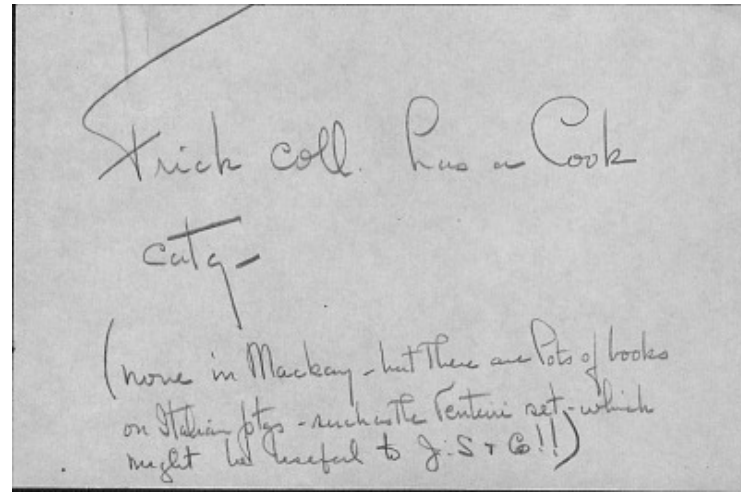 Frick coll. has a Cook
catg-
(none in Mackay - but there are lots of books
on Italian ptgs - such as the Venturi set - which
might be useful to J. S & Co!!)